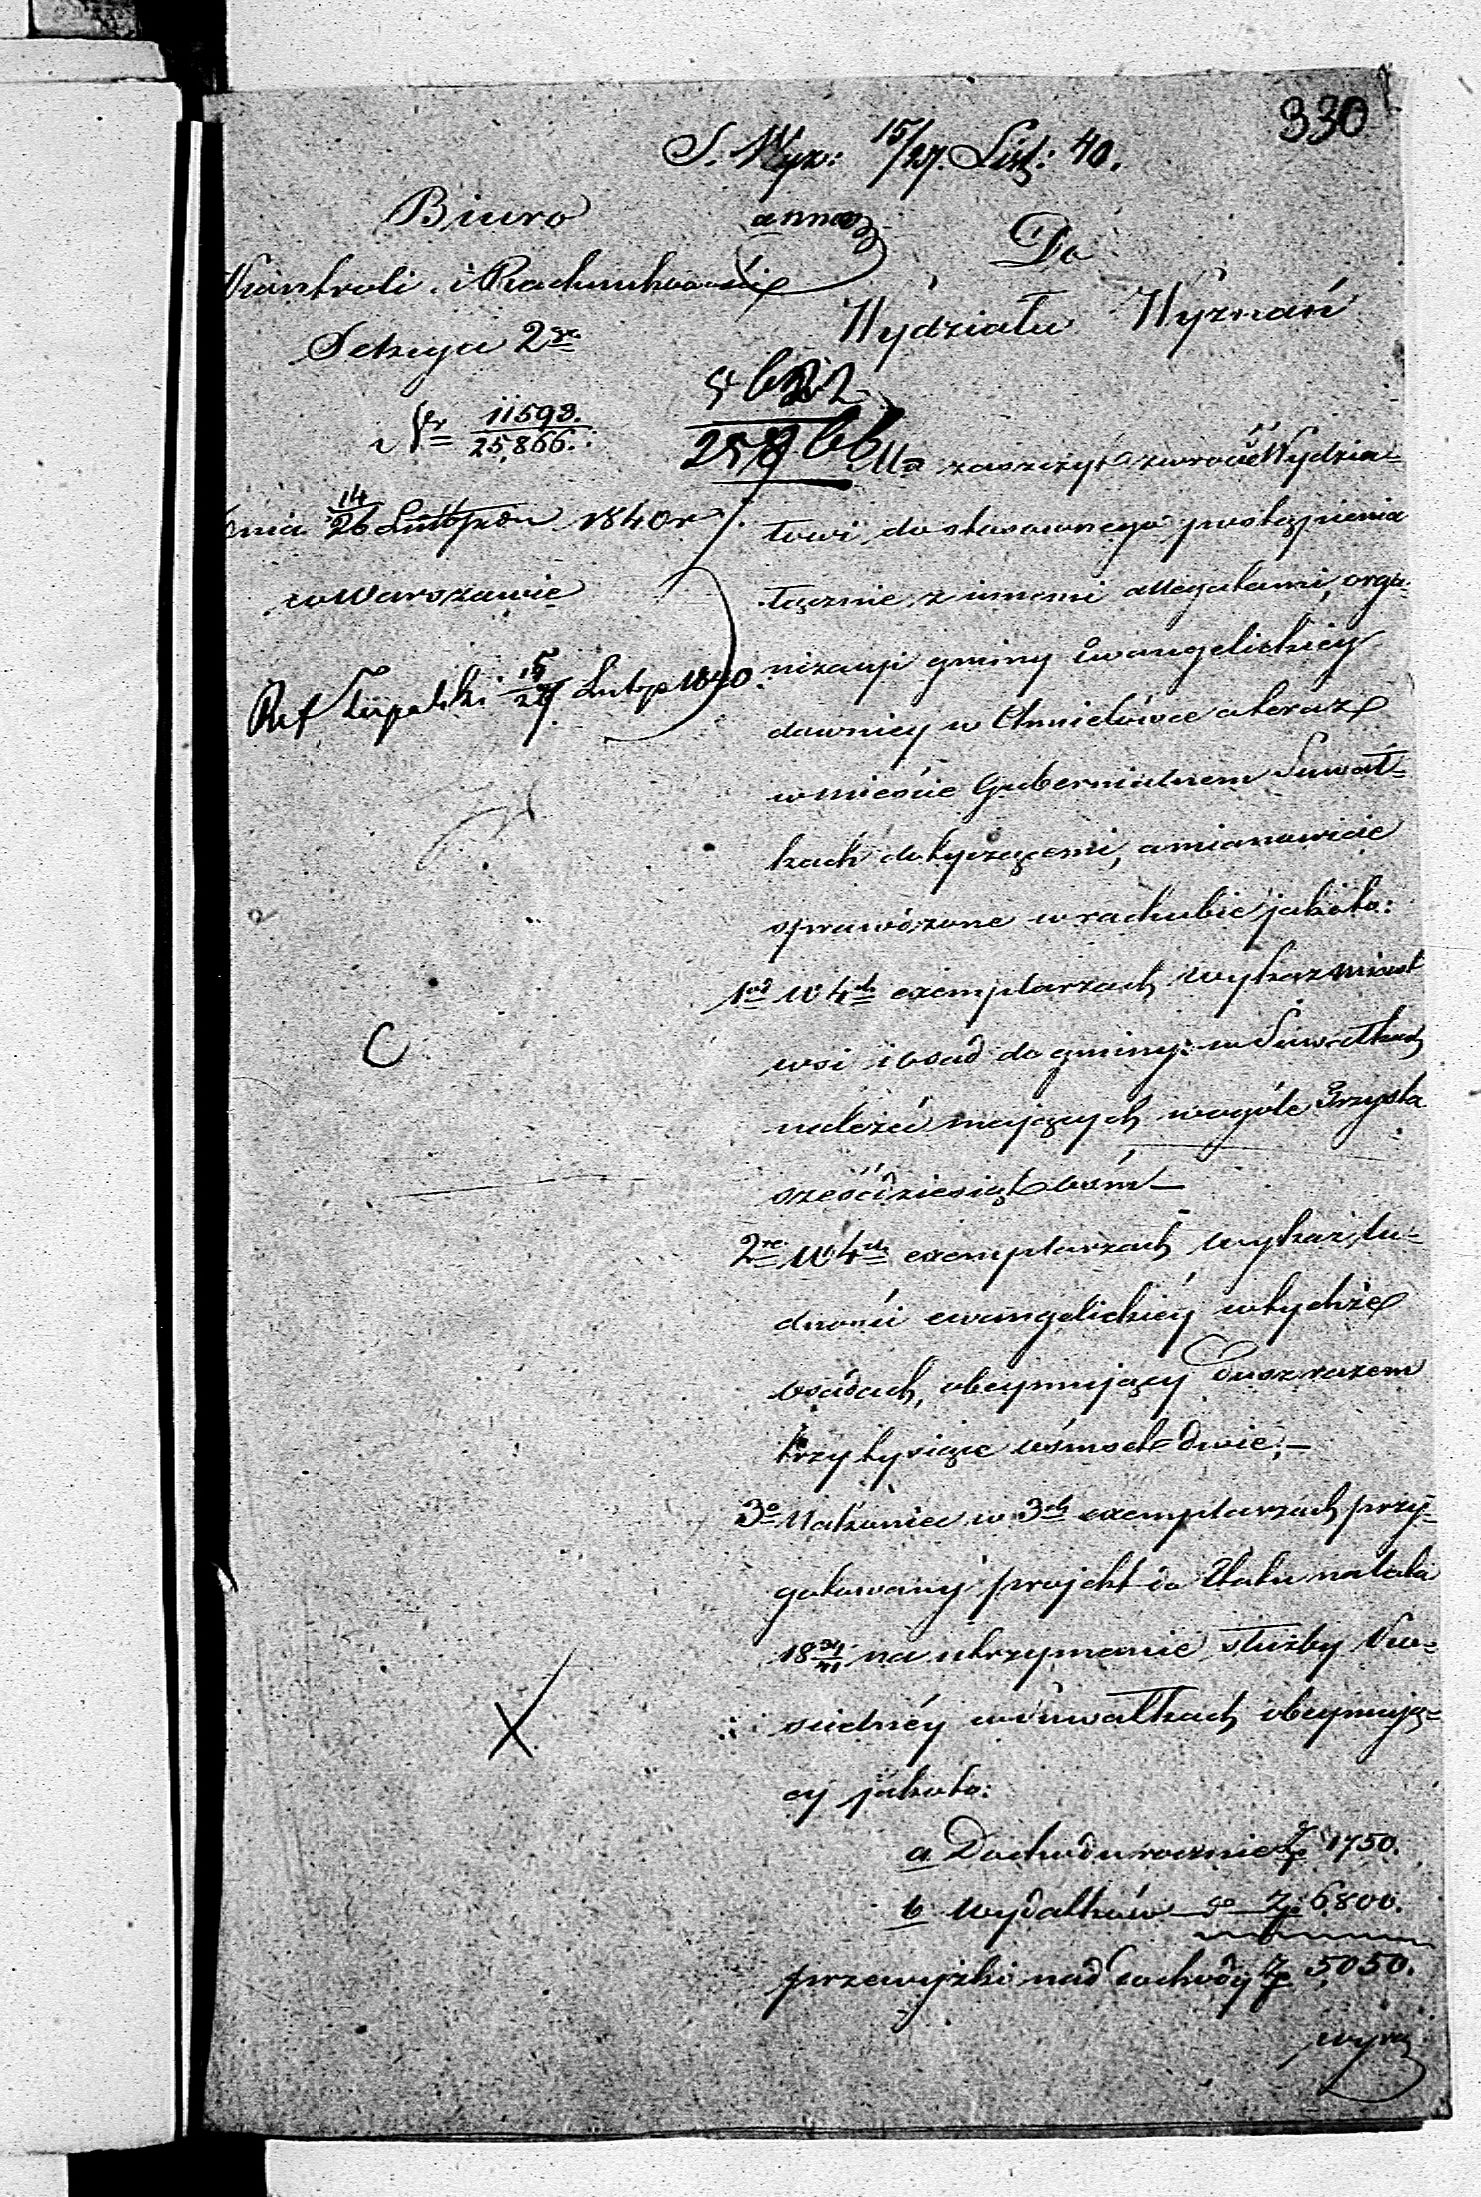 330
S. Wyz: 15/27. List: 40.
Biuro
Kontroli i Rachunkowości
Sekcya 2ga
Nr 11593.
25,866.
dnia 14/26 Listopada 1840 r
w Warszawie
Ref 15/27 Listop 1840
Do
Wydziału Wyznań
25866
Ma zaszczyt zwrócić Wydzia-
łowi do stosownego postąpienia
łącznie z innemi allegatami, orga-
nizacyi gminy Ewangelickiey
dawniey w Chmielówce a teraz
w mieście Gubernialnem Suwał-
kach dotyczącemi, a mianowicie
sprawdzone w rachubie jakoto:
1od W 4ch exemplarzach wykaz miast
wsi i osad do gminy w Suwałkach
należeć mających wogóle Trzysta
sześćdziesiąt osm —
2re W 4ch exemplarzach wykaz lu-
dności ewangelickiéy w tychże
osadach, obeymujący Dusz razem
trzy tysiące ośmset dwie; —
3o Nakoniec w 3ch exemplarzach przy-
gotowany projekt do Etatu na lata
18 39/41 na utrzymanie służby
w Suwałkach obeymują-
cy jakoto:
a Dochodu rocznie Zp 1750.
b wydatków do Zp 6800.
przewyżki nad dochody Zp 5050.